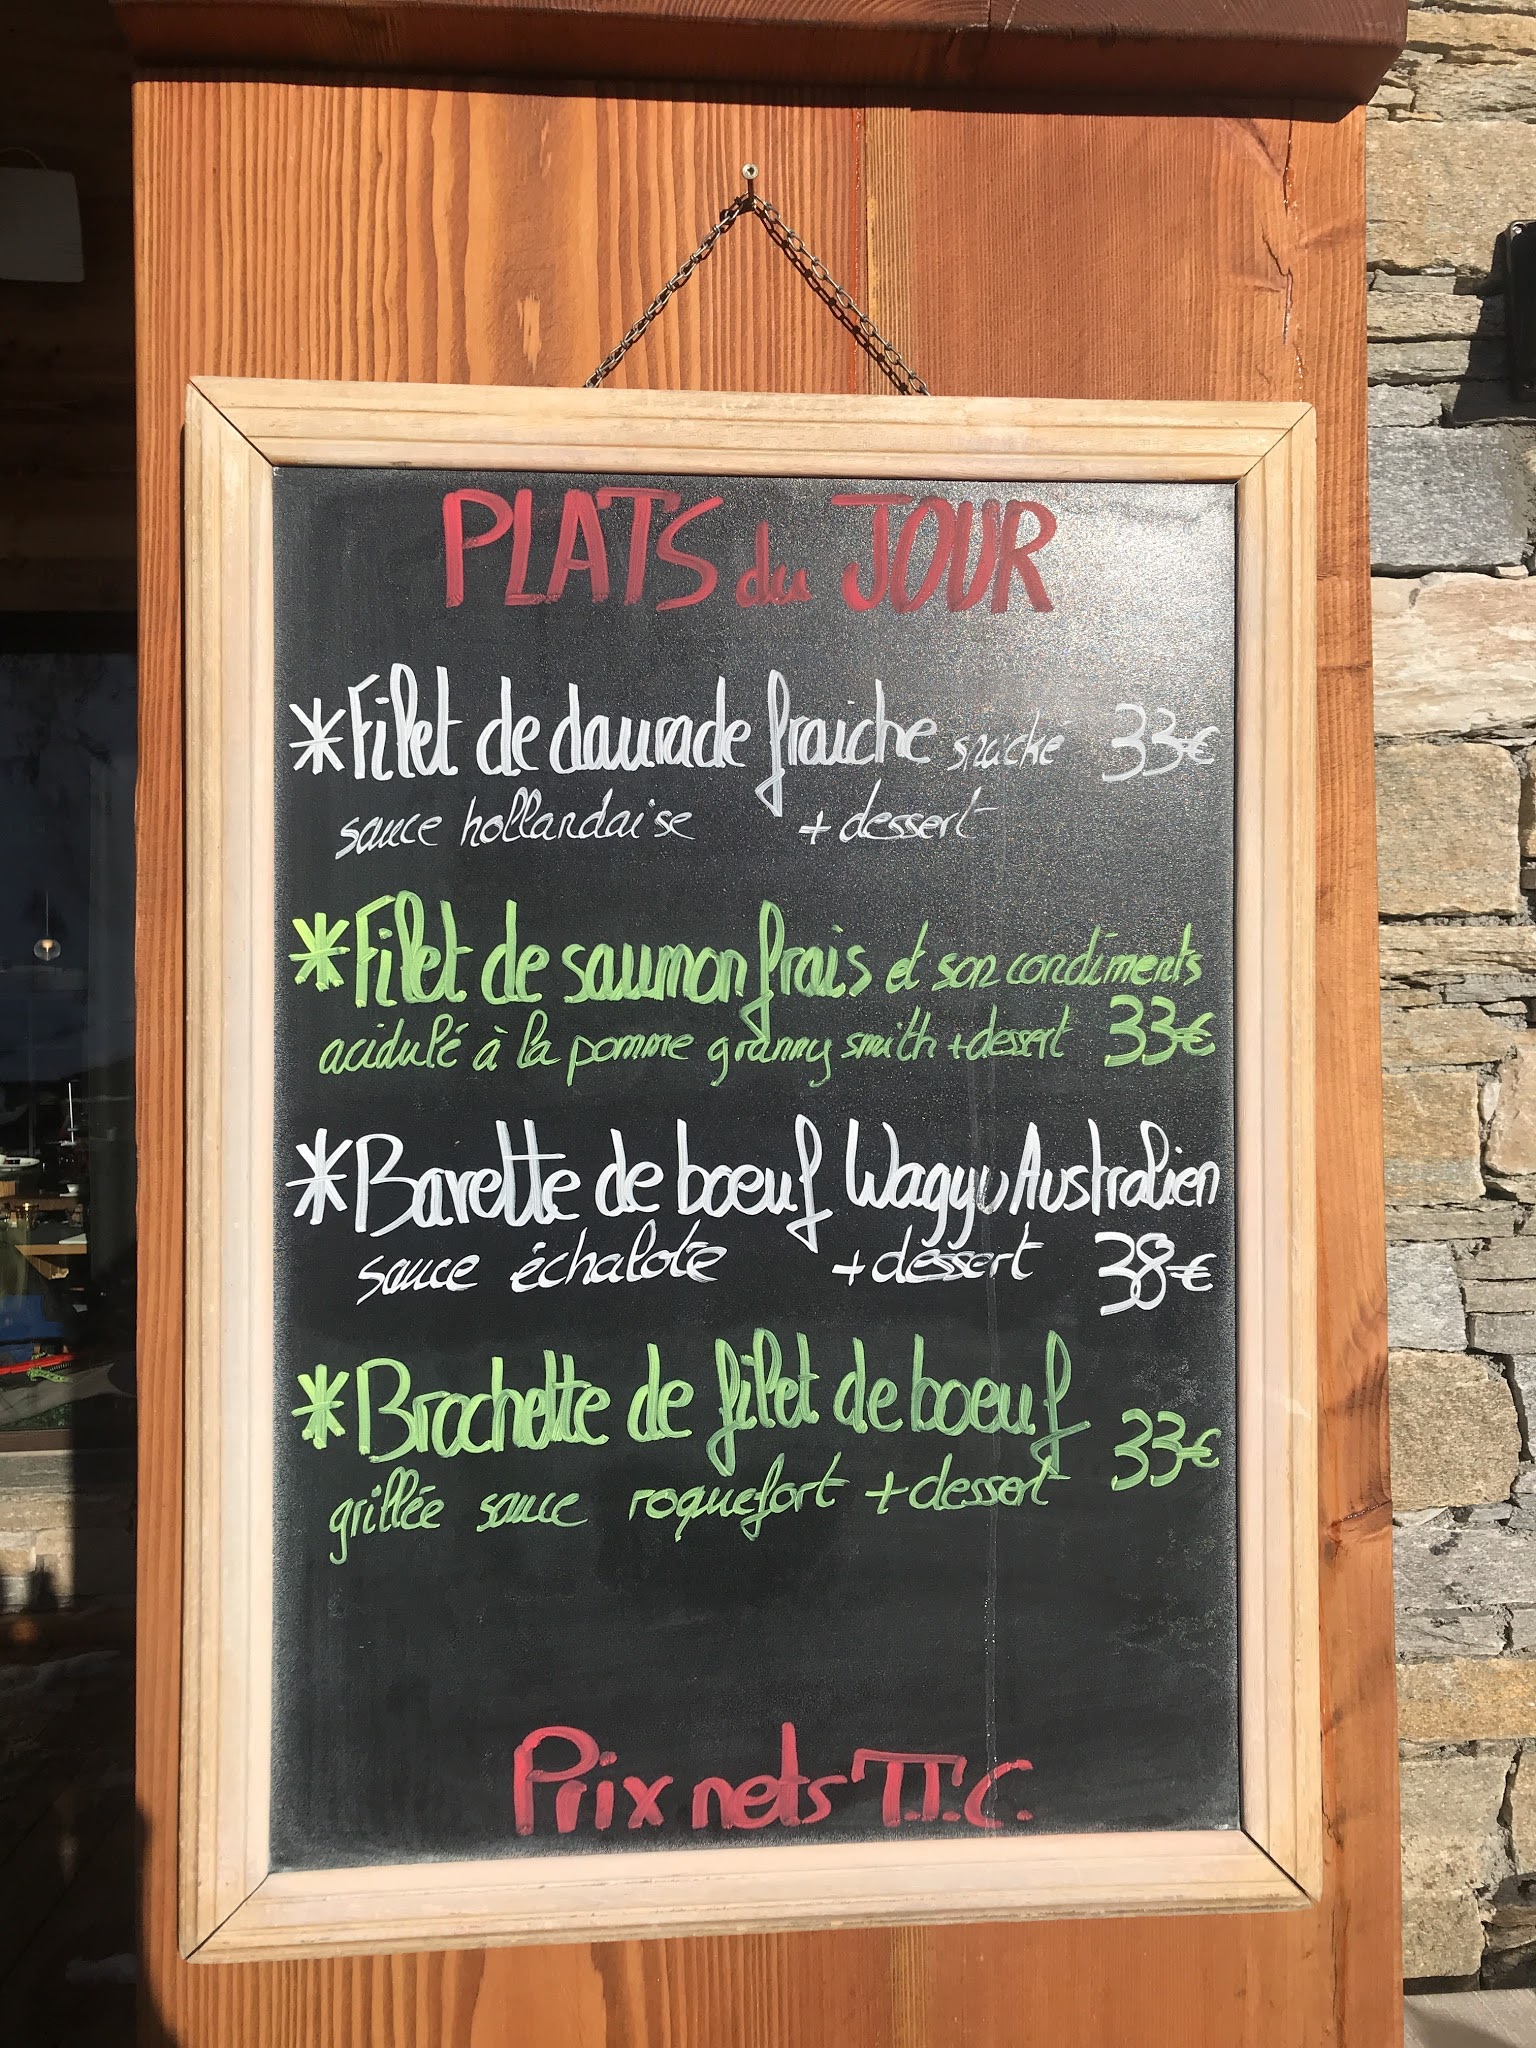 PLATS du JOUR
*Filet de daurade fraiche snacké 33€
sauce hollandaise + dessert
*Filet de saumon frais et son condiments
acidulé à la pomme granny smith + dessert 33€
*Bavette de boeuf Wagyu Australien
sauce échalote + dessert 38€
*Brochette de filet de boeuf
grillée sauce roquefort + dessert 33€
Prix nets T.T.C.